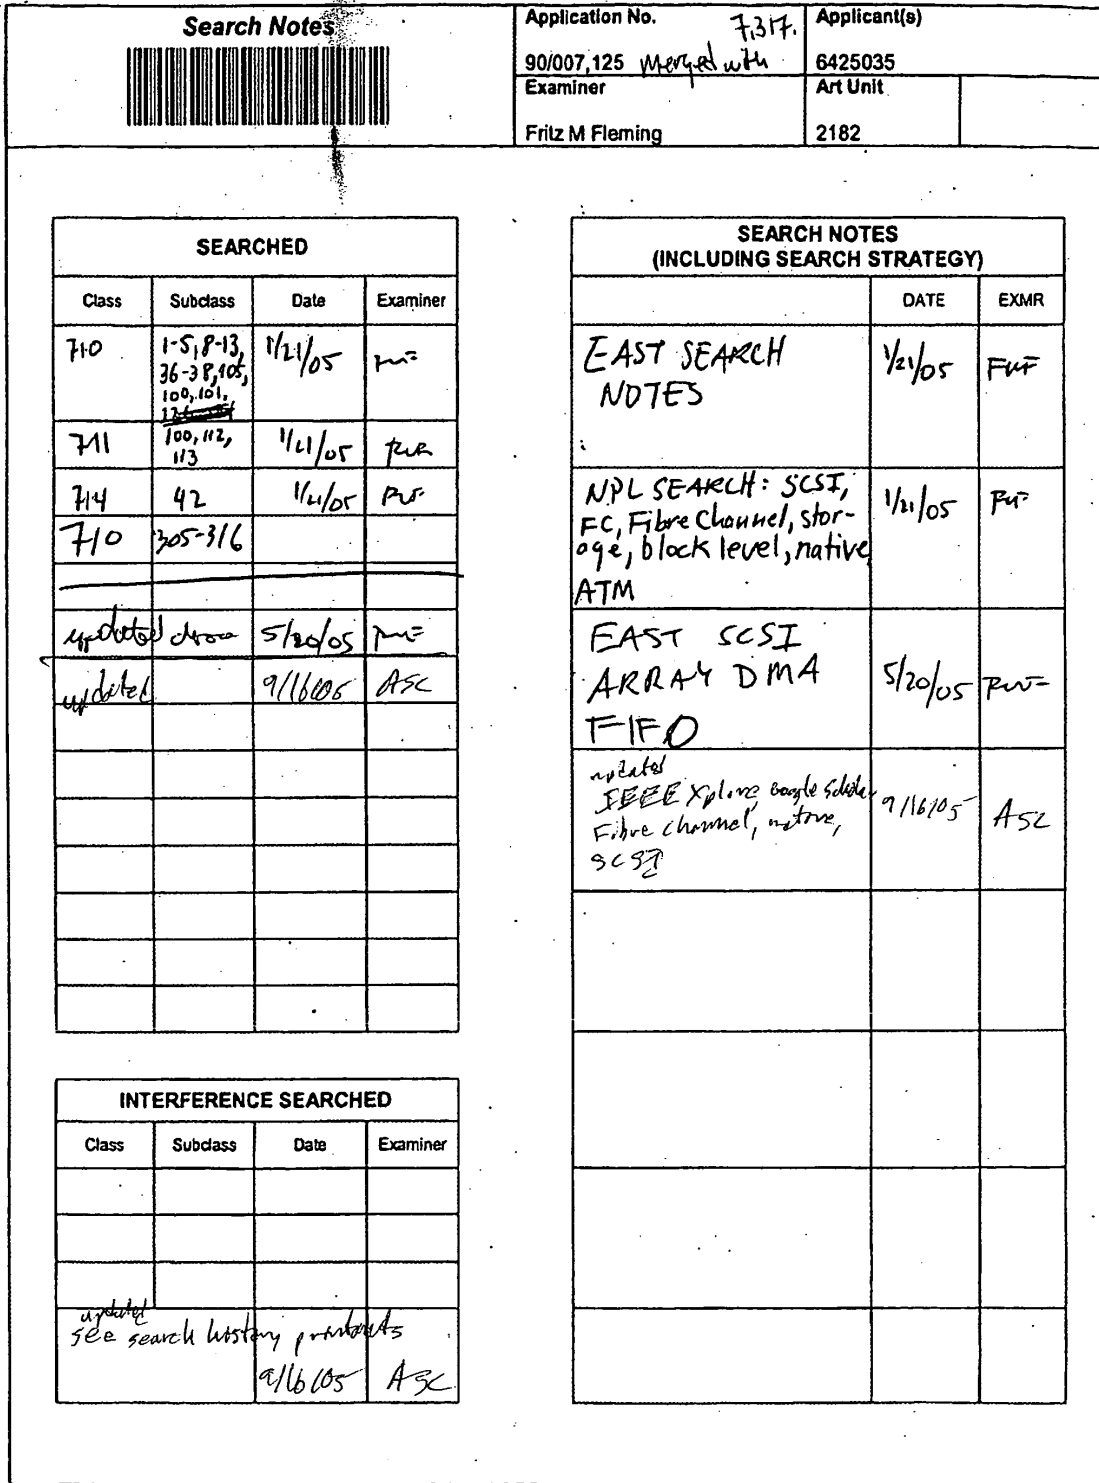 Search Notes
Application No.
7,317.
90/007,125 Merged with
Applicant(s)
6425035
Examiner
Fritz M Fleming
Art Unit
2182
SEARCHED
Class Subclass Date Examiner
710 1-5, 8-13, 1/21/05 FMF
36-38, 105,
100, 101,
711 100, 112, 1/21/05
113
714 42 1/21/05 FMF
710 305-316
updated above 5/20/05 FMF
updated 9/16/05 ASC
INTERFERENCE SEARCHED
Class Subclass Date Examiner
updated
see search history printouts
9/16/05 ASC
SEARCH NOTES
(INCLUDING SEARCH STRATEGY)
DATE EXMR
EAST SEARCH 1/21/05 FMF
NOTES
NPL SEARCH: SCSI, 1/21/05 FMF
FC, Fibre Channel, stor-
age, block level, native
ATM
EAST SCSI
ARRAY DMA 5/20/05 FMF
FIFO
updated
IEEE Xplore Google Scholar 9/16/05 ASC
Fibre channel, native,
SCSI